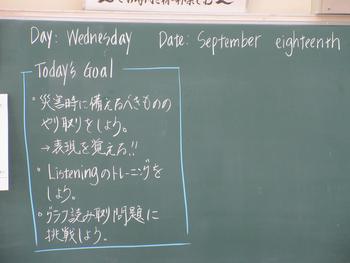 Day: Wednesday Date: September eighteenth
Today's Goal
・災害時に備えるべきものの
やり取りをしよう。
→表現を覚える!!
・Listeningのトレーニングを
しよう。
・グラフ読み取り問題に
挑戦しよう。